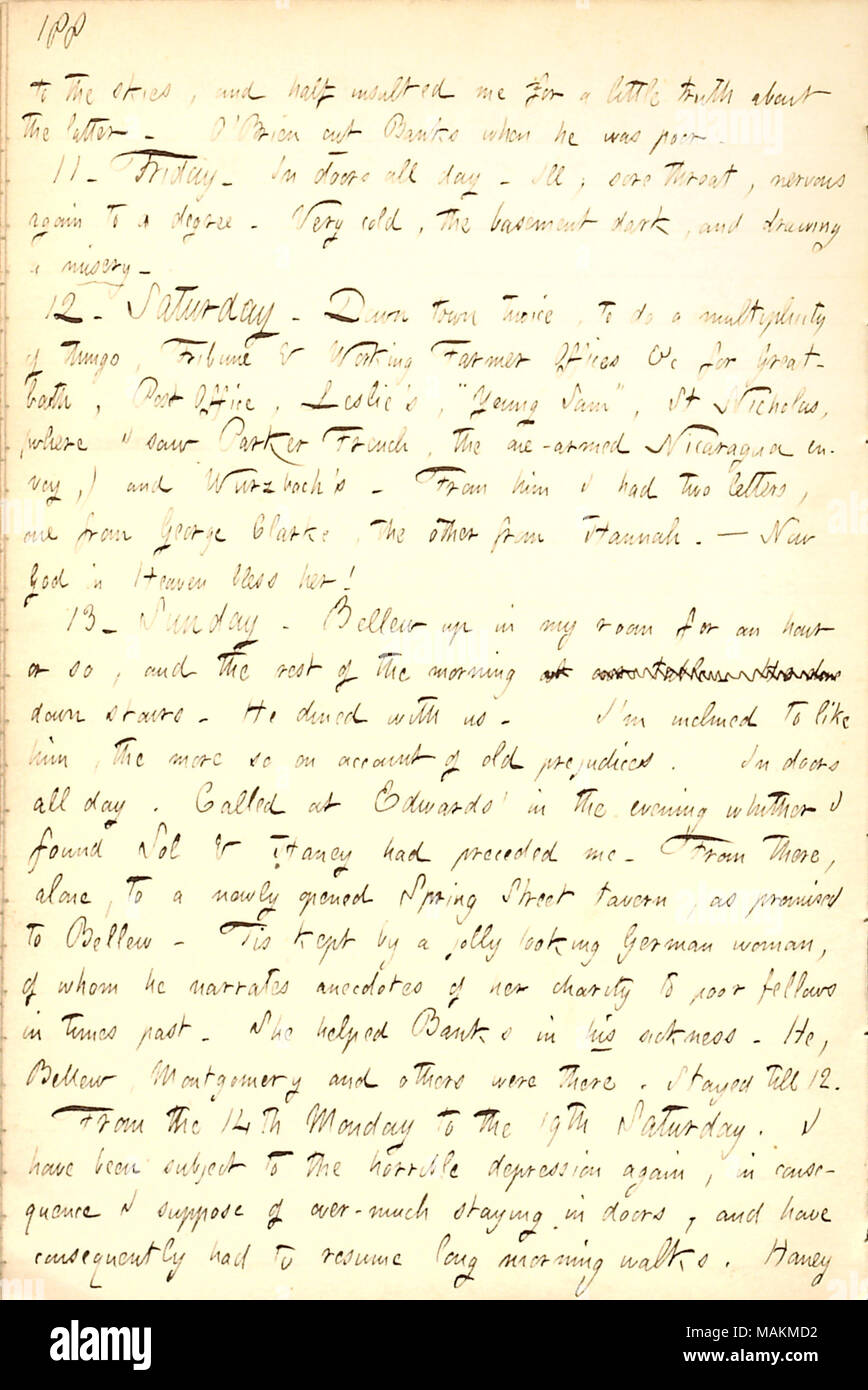 188
to the skies, and half insulted me for a little truth about
the latter - O'Brien cut Banks when he was poor -
11 - Friday - In doors all day - Ill; sore throat, nervous
again to a degree - Very cold, the basement dark, and drawing
a misery -
12 - Saturday - Down town twice, to do a multiplicity
of things, Tribune & Working Farmer Offices &c for Great-
batch, Post Office, Leslie's, "Young Sam", St Nicholas,
(where I saw Parker French, the one-armed Nicaragua en-
voy,) and Wurzbach's - From him I had two letters,
one from George Clarke, the other from Hannah. - Now
God in Heaven bless her!
13 - Sunday - Bellew up in my room for an hour
or so, and the rest of the morning
down stairs - He dined with us - I'm inclined to like
him, the more so on account of old prejudices. In doors
all day. Called at Edwards' in the evening whither I
found Sol & Haney had preceded me - From there,
alone, to a newly opened Spring Street tavern, as promised
to Bellew - Tis kept by a jolly looking German woman,
of whom he narrates anecdotes of her charity to poor fellows
in times past - She helped Banks in his sickness - He,
Bellew, Montgomery and others were there. Stayed till 12.
From the 14th Monday to the 19th Saturday. I
have been subject to the horrible depression again, in conse-
quence I suppose of over-much staying in doors, and have
consequently had to resume long morning walks. Haney
alamy
Image ID: MAKMD2
www.alamy.com